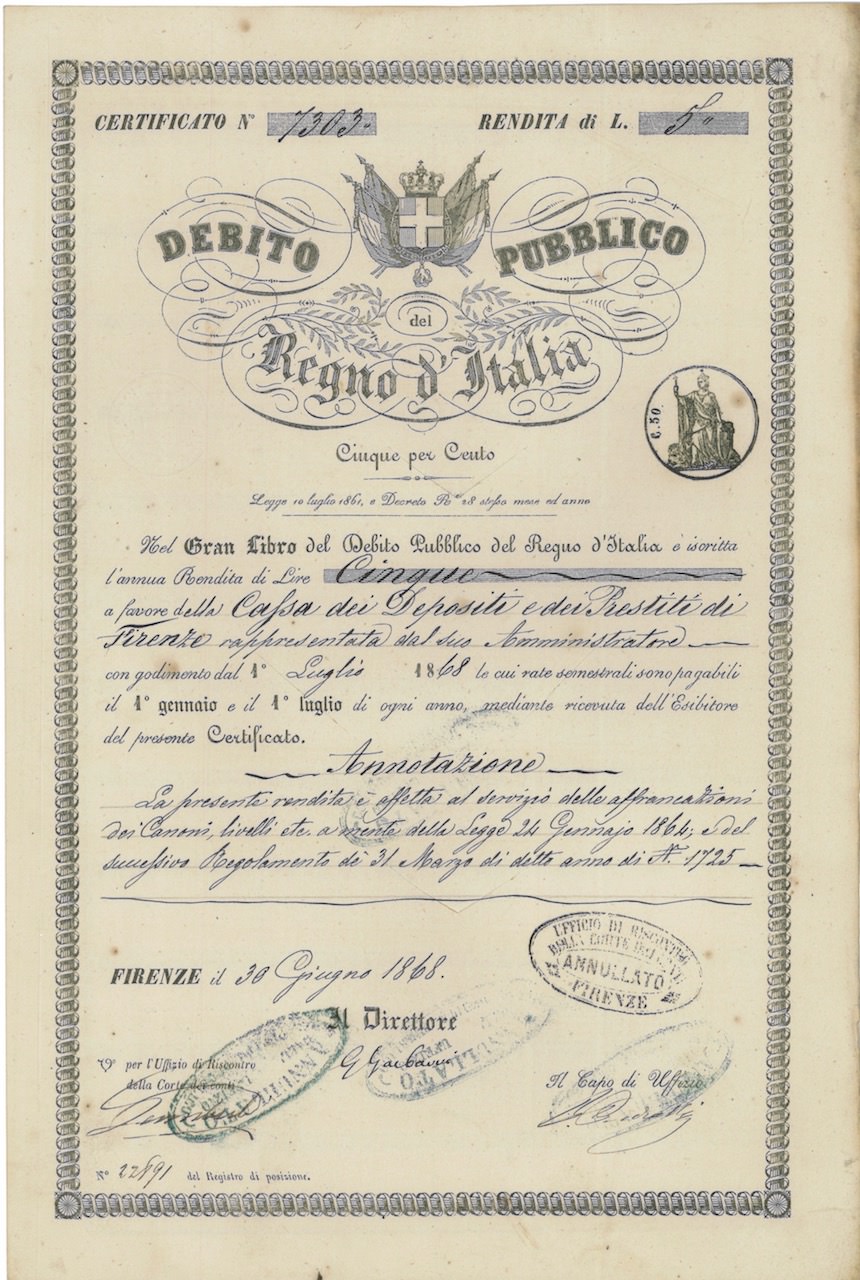 CERTIFICATO N° 7303. RENDITA di L. 5"
DEBITO PUBBLICO
del
Regno d'Italia
C. 50.
Cinque per Cento
Legge 10 luglio 1861, e Decreto R.le 28 stesso mese ed anno
Nel Gran Libro del Debito Pubblico del Regno d'Italia è iscritta
l'annua Rendita di Lire Cinque
a favore della Cassa dei Depositi e dei Prestiti di
Firenze rappresentata dal suo Amministratore
con godimento dal 1° Luglio 1868 le cui rate semestrali sono pagabili
il 1° gennaio e il 1° luglio di ogni anno, mediante ricevuta dell'Esibitore
del presente Certificato.
Annotazione
La presente rendita è affetta al servizio delle affrancazioni
dei Canoni, livelli etc. a mente della Legge 24 Gennajo 1864; e del
successivo Regolamento de 31 Marzo di detto anno di N. 1725
UFFICIO DI RISCONTRO
DELLA CORTE DEI CONTI
ANNULLATO
FIRENZE
FIRENZE il 30 Giugno 1868.
Il Direttore
V° per l'Uffizio di Riscontro
della Corte dei conti
Il Capo di Uffizio
ANNULLATO
N° 22891 del Registro di posizione.